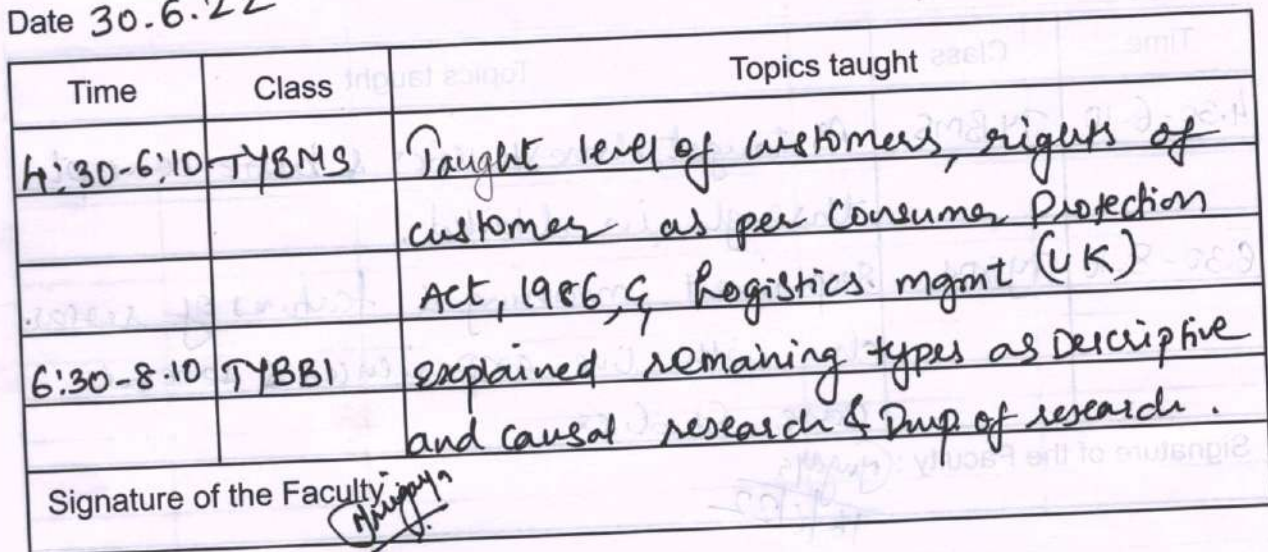 Date 30.6.22
Time Class Topics taught
4:30-6:10 TYBMS Taught level of customers, rights of
customer as per Consumer Protection
Act, 1986, & Logistics mgmt (UK)
6:30-8:10 TYBBI explained remaining types as Descriptive
and causal research & Imp of research.
Signature of the Faculty